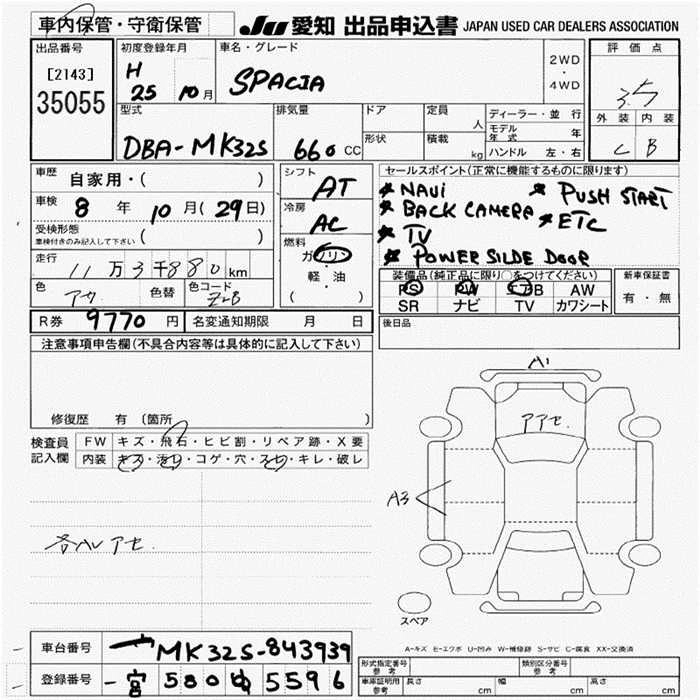 車内保管・守衛保管
JU 愛知 出品申込書 JAPAN USED CAR DEALERS ASSOCIATION
出品番号
[2143]
35055
初度登録年月
H
25 10月
車名・グレード
SPACIA
2WD
・
4WD
評価点
3.5
外装 内装
C B
型式
DBA-MK32S
排気量
660 CC
ドア
形状
定員
人
積載
kg
ディーラー・並行
モデル年式 年
ハンドル 左・右
車歴 自家用・( )
車検 8年 10月(29日)
受検形態
車検付きのみ記入して下さい ( )
走行 11万3千880km
色 アカ 色替 色コード ZLB
シフト
AT
冷房
AC
燃料
ガソリン
・
軽・油
( )
セールスポイント(正常に機能するものに限ります)
★ NAVI ★ PUSH START
★ BACK CAMERA ★ ETC
★ TV
★ POWER SIDE DOOR
装備品(純正品に限り○をつけてください)
PS PW エアB AW
SR ナビ TV カワシート
新車保証書
有・無
R券 9770円 名変通知期限 月 日
後日品
注意事項申告欄(不具合内容等は具体的に記入して下さい)
修復歴 有 〔箇所
検査員記入欄
FW キズ・飛石・ヒビ割・リペア跡・X要
内装 キズ・汚れ・コゲ・穴・スレ・キレ・破レ
各ハレアセ.
A1
アアセ.
A3
スペア
A-キズ E-エクボ U-凹み W-補修跡 S-サビ C-腐食 XX-交換済
車台番号 MK32S-843939
登録番号 一宮 580 ゆ 5596
形式指定番号
参考
類別区分番号
参考
車庫証明用
参考
長さ cm 幅 cm 高さ cm